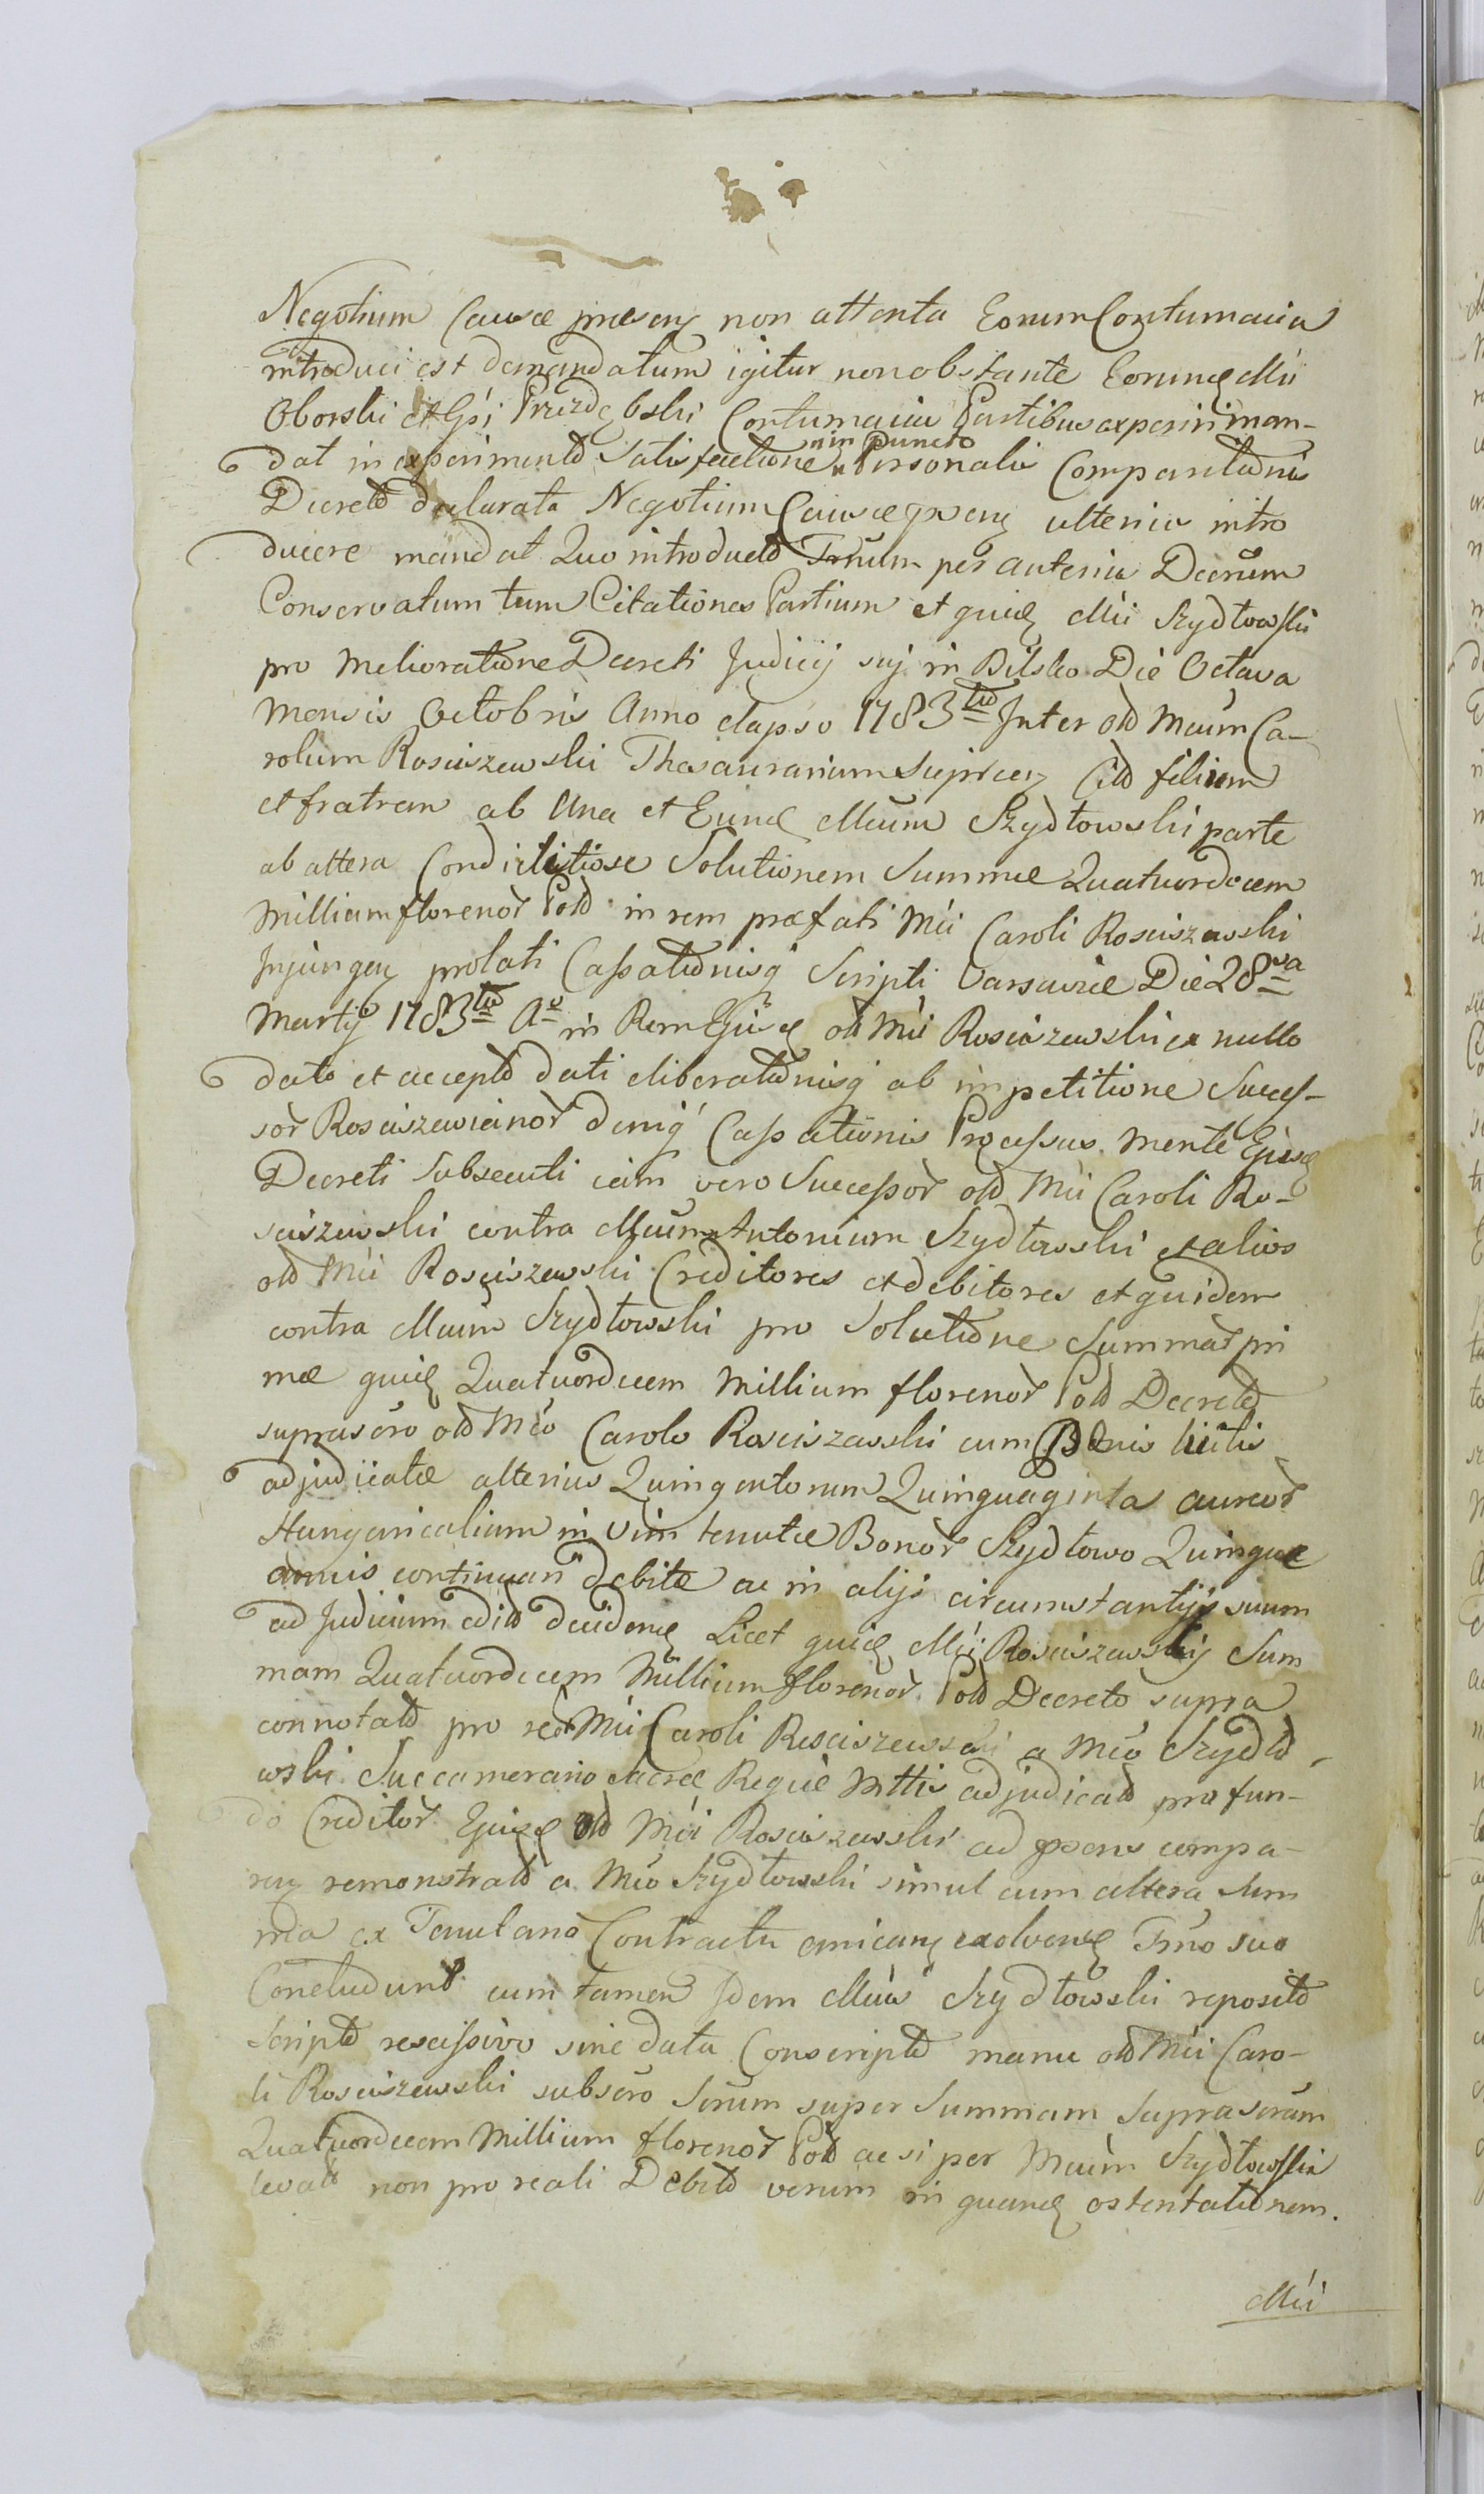 Negotium Causæ præseng non attenta Eorum Contumacia
introduci est demandatum igitur non obstante Eorund Mii
Oborski et Gsi Przezdębski Contumacia Partibus experiri man-
dat in experimento Satisfactione in Puncto Personalis Comparitionis
Decreto declarata Negotium Causæ pseng ulterius intro
ducere mandat Quo introducto Trnum per anterius Decrum
Conservatum tum Citationes Partium et quid Mii Szydłowski
pro Melioratione Decreti Judicij sui in Bilsko Die Octava
Mensis Octobris Anno elapso 1783tio Inter olim Mcum Ca-
rolum Rosciszewski Thesaurarium
et fratrem ab Una et Eund Mcum Szydłowski parte
ab altera Condictitiose Solutionem Summæ Quatuordecem
Millium florenor Pol in rem præfati Mci Caroli Rosciszewski
Injungeng prolati Cassationisq Scripti Varsaviæ Die 28va
Martij 1783tio Ao in Rem Ejusd olim Mci Rosciszewski ex nullo
dato et accepto dati eliberationisq ab impetitione Succes-
sor Rosciszewscianor deniq Cassationis Processus mente Ejusd
Decreti Subsecuti iam vero Successor olim Mci Caroli Ro-
sciszewski contra Mcum Antonium Szydłowski et alios
olim Mci Rosciszewski Creditores et debitores et quidem
contra Mcum Szydłowski pro Solutione Summar pri
mæ quid Quatuordecem Millium florenor Pol Decreto
suprascro olim Mco Carolo Rosciszewski cum Pœnis Litis
adjudicatæ alterius Quingentorum Quinquaginta aureor
Hungaricalium in Vim tenutæ Bonor Szydłowo Quinque
annis continuan debitæ ac in alijs circumstantijs suum
ad Judicium edito decidend Licet quid Mci Rosciszewskij Sum
mam Quatuordecem Millium florenor Pol Decreto supra
connotato pro re olim Mci Caroli Rosciszewski a Mco Szydło-
wski Succamerario Sacræ Regiæ Mttis adjudicato pro fun-
do Creditor Ejusd olim Mci Rosciszewski ad psens compa-
reng remonstrato a Mco Szydłowski simul cum altera Sum
ma ex Tenutano Contractu emicang exolvend Trno suo
Concludunt cum tamen Idem Mcus Szydłowski reposito
Scripto rescissivo sine data Conscripto manu olim Mci Caro-
li Rosciszewski subscro Scrum super Summam Suprascram
Quatuordecem Millium florenor Pol ac si per Mcum Szydłowski
levato non pro reali Debito verum in quand ostentationem.
Mci